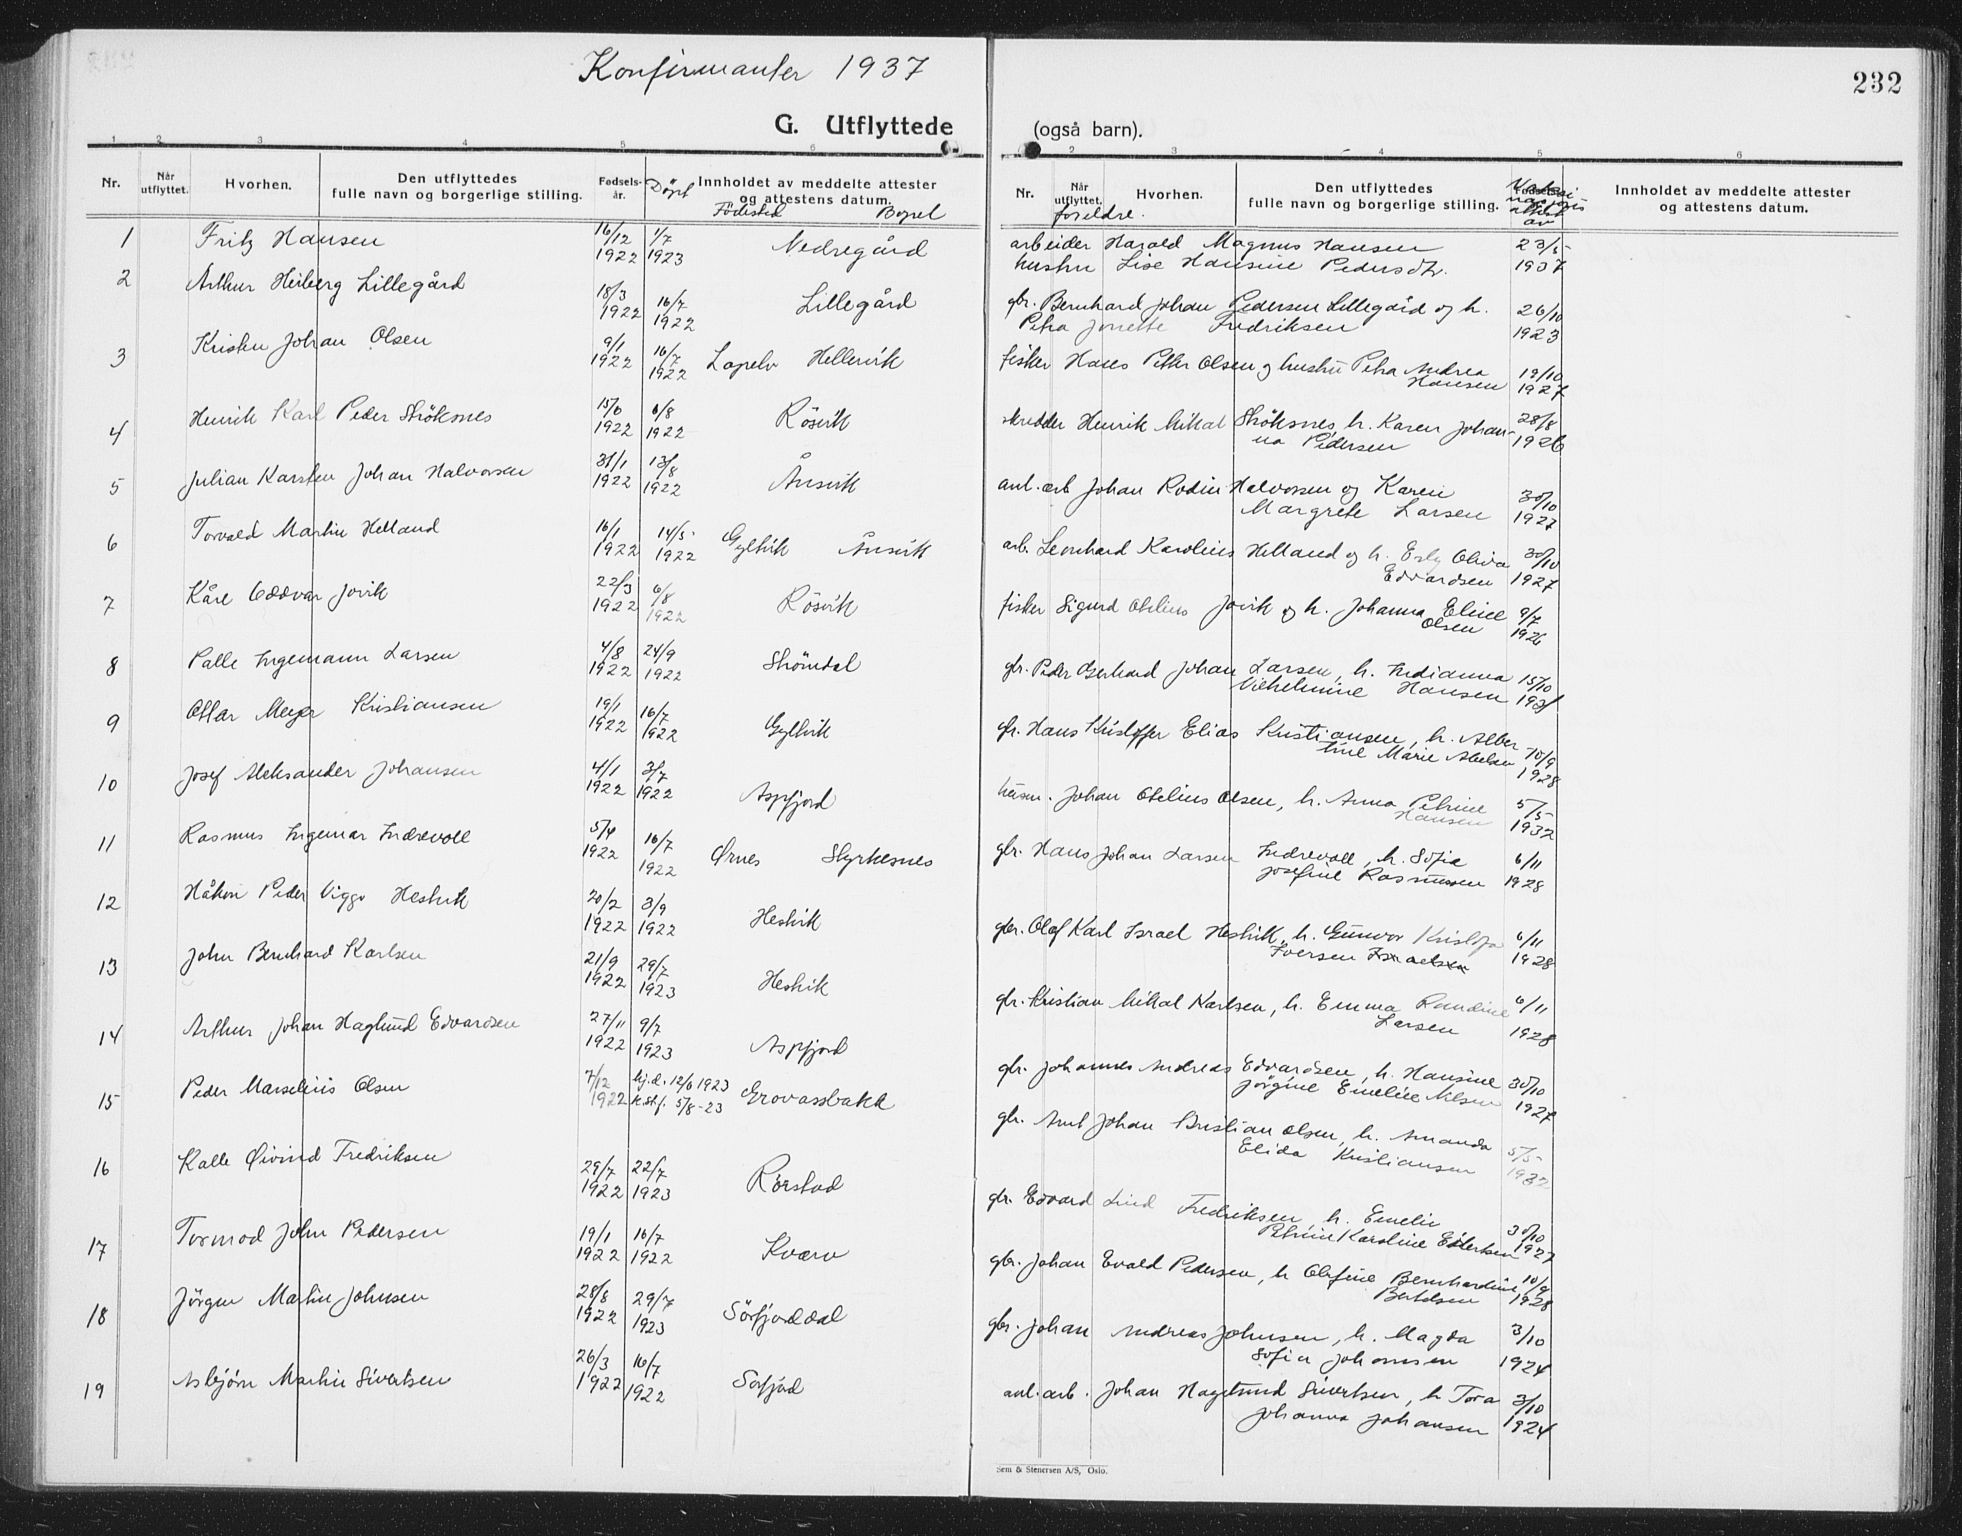 Konfirmanter 1937
232
G. Utflyttede (også barn).
1 2 3 4 5 6
2 3 4 5 6
Nr. Når utflyttet. Hvorhen. Den utflyttedes fulle navn og borgerlige stilling. Fødsels-år. Döpt Innholdet av meddelte attester og attestens datum.
Födested Bopel
Nr. Når utflyttet. Hvorhen. Den utflyttedes fulle navn og borgerlige stilling. Innholdet av meddelte attester og attestens datum.
foreldre.
1 Fritz Hansen 16/12 1922 1/7 1923 Nedregård
arbeider Harald Magnus Hansen 23/5
hustru Lise Hansine Pedersdtr. 1937
2 Arthur Heiberg Lillegård 18/3 1922 16/7 1922 Lillegård
gbr. Bernhard Johan Pedersen Lillegård og h. 26/10
Petra Jonette Fredriksen 1923
3 Kristen Johan Olsen 9/1 1922 16/7 1922 Hellervik
fisker Hans Petter Olsen og hustru Petra Andrea 19/10
Hansen 1927
4 Henrik Karl Peder Ströksnes 15/6 1922 6/8 1922 Rösvik
skredder Henrik Mikal Ströksnes, h. Karen Johan- 28/8
na Pedersen 1926
5 Julian Karsten Johan Halvorsen 31/1 1922 13/8 1922 Ånsvik
anl. arb Johan Rodin Halvorsen og Karen 30/10
Margrete Larsen 1927
6 Torvald Martin Helland 16/1 1922 14/5 1922 Gyltvik Ånsvik
arb. Leonhard Karolius Helland og h. Oliva 30/10
Edvardsen 1927
7 Kåre Oddvar Jovik 22/3 1922 6/8 1922 Rösvik
fisker Sigurd Otelius Jovik og h. Johanna Eline 9/7
Olsen 1926
8 Palle Ingemann Larsen 4/8 1922 24/9 1922 Ströndal
gbr. Peder Gerhard Johan Larsen, h. Indianna 15/10
Vilhelmine Hansen
9 Ottar Meyer Kristiansen 19/1 1922 16/7 1922 Gyltvik
gbr. Hans Kristoffer Elias Kristiansen, h. Alber 10/9
tine Marie Abelsen 1928
10 Josef Aleksander Johansen 4/1 1922 3/7 1922 Aspfjord
Johan Otelius Olsen, h. Anna Petrine 5/5
Hansen 1932
11 Rasmus Ingemar Indrevoll 5/4 1922 16/7 1922 Ørnes Styrkesnes
gbr. Hans Johan Larsen Indrevoll, h. Sofie 6/11
Josefine Rasmussen 1928
12 Håkon Peder Viggo Hestvik 20/2 1922 3/9 1922 Hestvik
gbr. Olaf Karl Israel Hestvik, h. Gunvor 6/11
Iversen Israelsen 1928
13 John Bernhard Karlsen 21/9 1922 29/7 1923 Hestvik
gbr. Kristian Mikal Karlsen, h. Emma Randine 6/11
Larsen 1928
14 Arthur Johan Haglund Edvardsen 27/11 1922 9/7 1923 Aspfjord
gbr. Johannes Andreas Edvardsen, h. Hansine 30/10
Jörgine Emelie Nilsen 1927
15 Peder Marselius Olsen 7/12 1922 hj.d. 12/6 1923
st.f. 5/8-23 Grovassbakk
gbr. Arnt Johan Kristian Olsen, h. Amanda 5/5
Elida Kristiansen 1932
16 Kalle Øivind Fredriksen 29/7 1922 22/7 1923 Rørstad
gbr. Edvard Lind Fredriksen, h. Emelie 30/10
Petrine Karoline 1927
17 Tormod John Pedersen 19/1 1922 16/7 1922 Kværv
gbr. Johan Evald Pedersen, h Olefine Bernhardine 10/9
Bertelsen 1928
18 Jörgen Martin Johnsen 28/8 1922 29/7 1923 Sörfjorddal
gbr. Johan Andreas Johnsen, h. Magda 3/10
Sofia Johannsen 1924
19 Asbjörn Martin Sivertsen 26/3 1922 16/7 1922 Sörfjord
anl. arb. Johan Hagelund Sivertsen, h Tora 3/10
Johanna Johansen 1924
Sem & Stenersen A/S, Oslo.